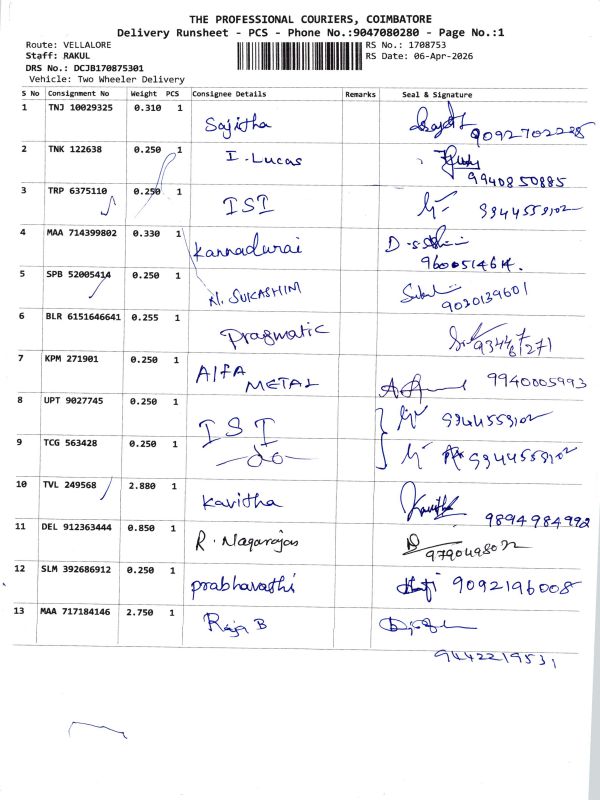 THE PROFESSIONAL COURIERS, COIMBATORE
Delivery Runsheet - PCS - Phone No.:9047080280 - Page No.:1
Route: VELLALORE RS No.: 1708753
Staff: RAKUL RS Date: 06-Apr-2026
DRS No.: DCJB170875301
Vehicle: Two Wheeler Delivery
S No Consignment No Weight PCS Consignee Details Remarks Seal & Signature
1 TNJ 10029325 0.310 1 Sajitha 9092702228
2 TNK 122638 0.250 1 I. Lucas 9940850885
3 TRP 6375110 0.250 1 IST 9944559102
4 MAA 714399802 0.330 1 Kannadurai 9600514614
5 SPB 52005414 0.250 1 N. SUKASHIM 9020139601
6 BLR 6151646641 0.255 1 Pragmatic
7 KPM 271901 0.250 1 Alfa METAL 9940005993
8 UPT 9027745 0.250 1 IST 9944559102
9 TCG 563428 0.250 1 -do- 9944559102
10 TVL 249568 2.880 1 Kavitha 9894984992
11 DEL 912363444 0.850 1 R. Nagarajas
12 SLM 392686912 0.250 1 prabhavathi 9092196008
13 MAA 717184146 2.750 1 Raja B
9442219531